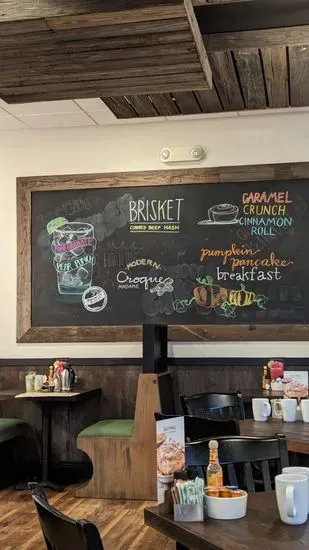 POMEGRANATE
PEAR PUNCH
BRISKET
CORNED BEEF HASH
MODERN
Croque
MADAME
CARAMEL
CRUNCH
CINNAMON
ROLL
pumpkin
pancake
breakfast